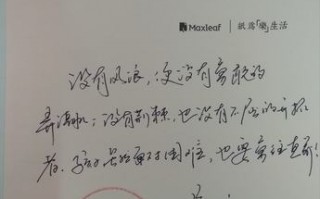 Maxleaf 纸造「乐」生活
没有风浪，便没有勇敢的
弄潮儿；没有荆棘，也没有不屈的开拓
者。孩子 面对困难，也要勇往直前！